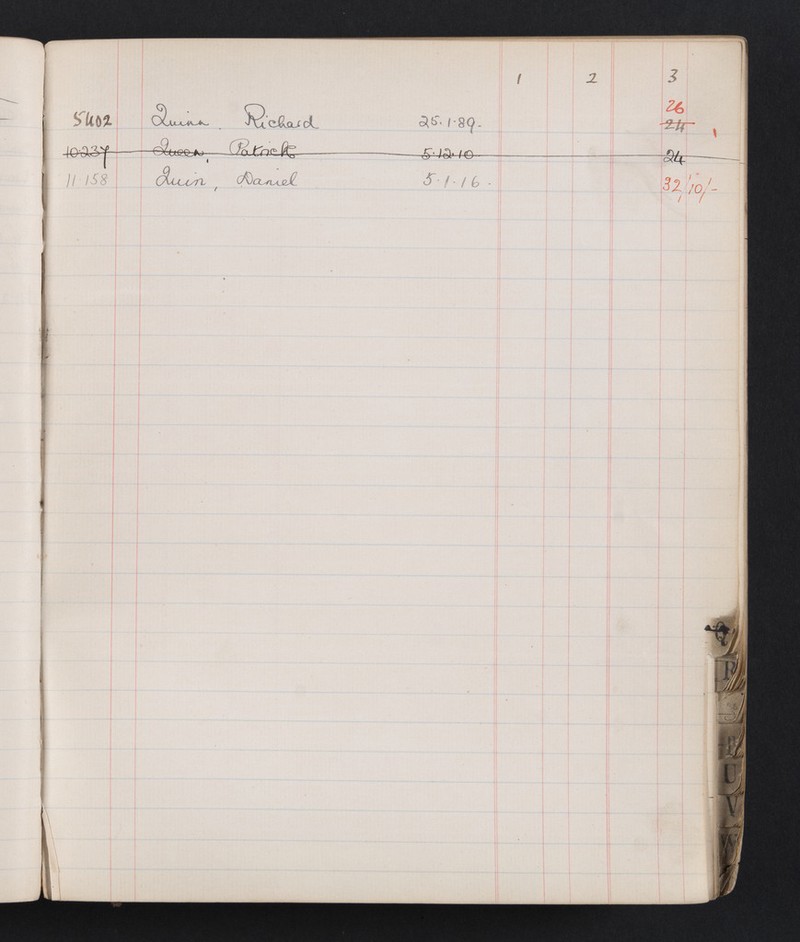 1 2 3
26
5402 Quinn, Richard 25.1.89. 24
10237 Queen, Patrick 5.12.10 24
11158 Quin, Daniel 5.1.16. 32/10/-
R
U
V
W